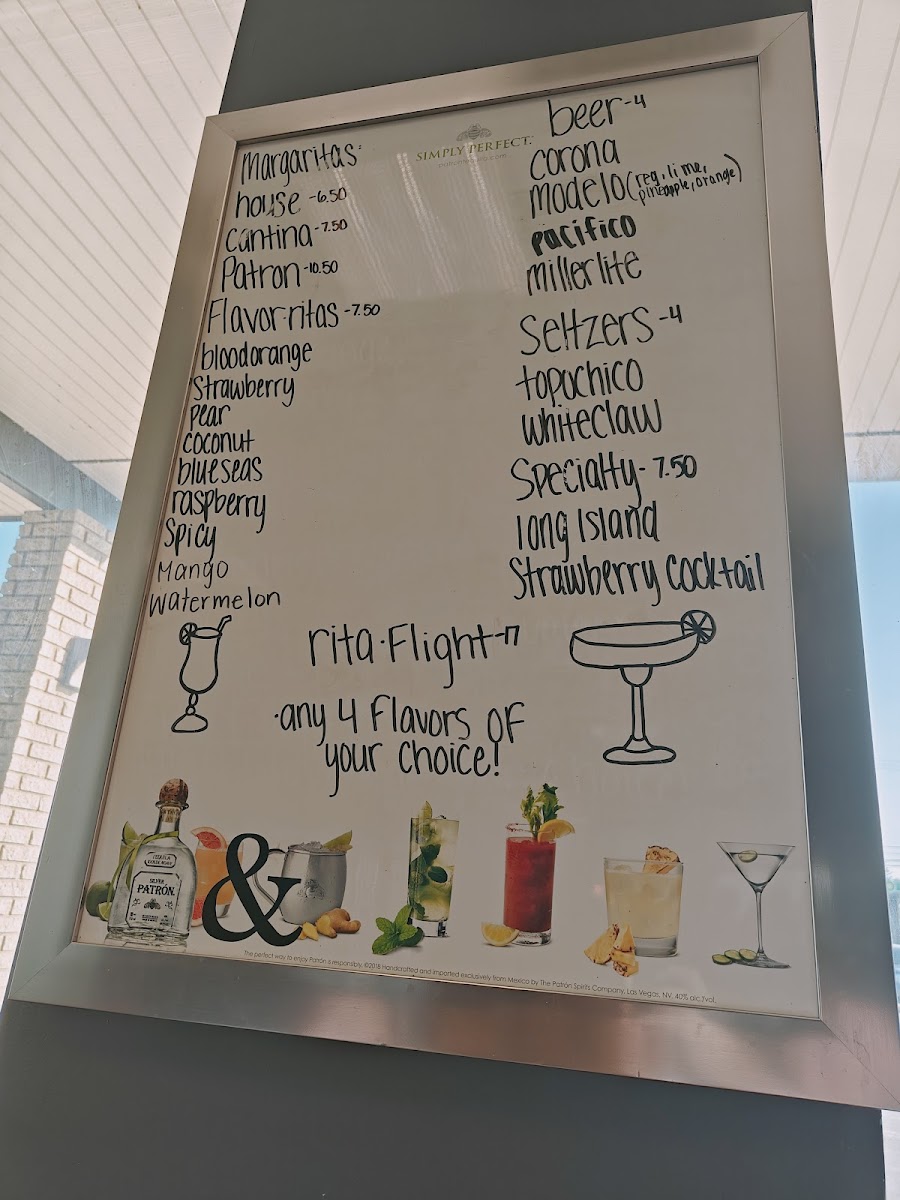 SIMPLY PERFECT.
Margaritas:
house -6.50
Cantina -7.50
Patron -10.50
Flavor-ritas -7.50
bloodorange
Strawberry
pear
coconut
blueseas
raspberry
Spicy
Mango
Watermelon
beer -4
corona
modelo (reg, lime,
pineapple, orange)
pacifico
millerlite
Seltzers -4
topochico
whiteclaw
Specialty - 7.50
long Island
Strawberry Cocktail
rita·Flight -17
·any 4 Flavors of
your choice!
SILVER
PATRÓN
&
The perfect way to enjoy Patrón is responsibly. ©2018 Handcrafted and imported exclusively from Mexico by The Patrón Spirits Company, Las Vegas, NV. 40% alc./vol.